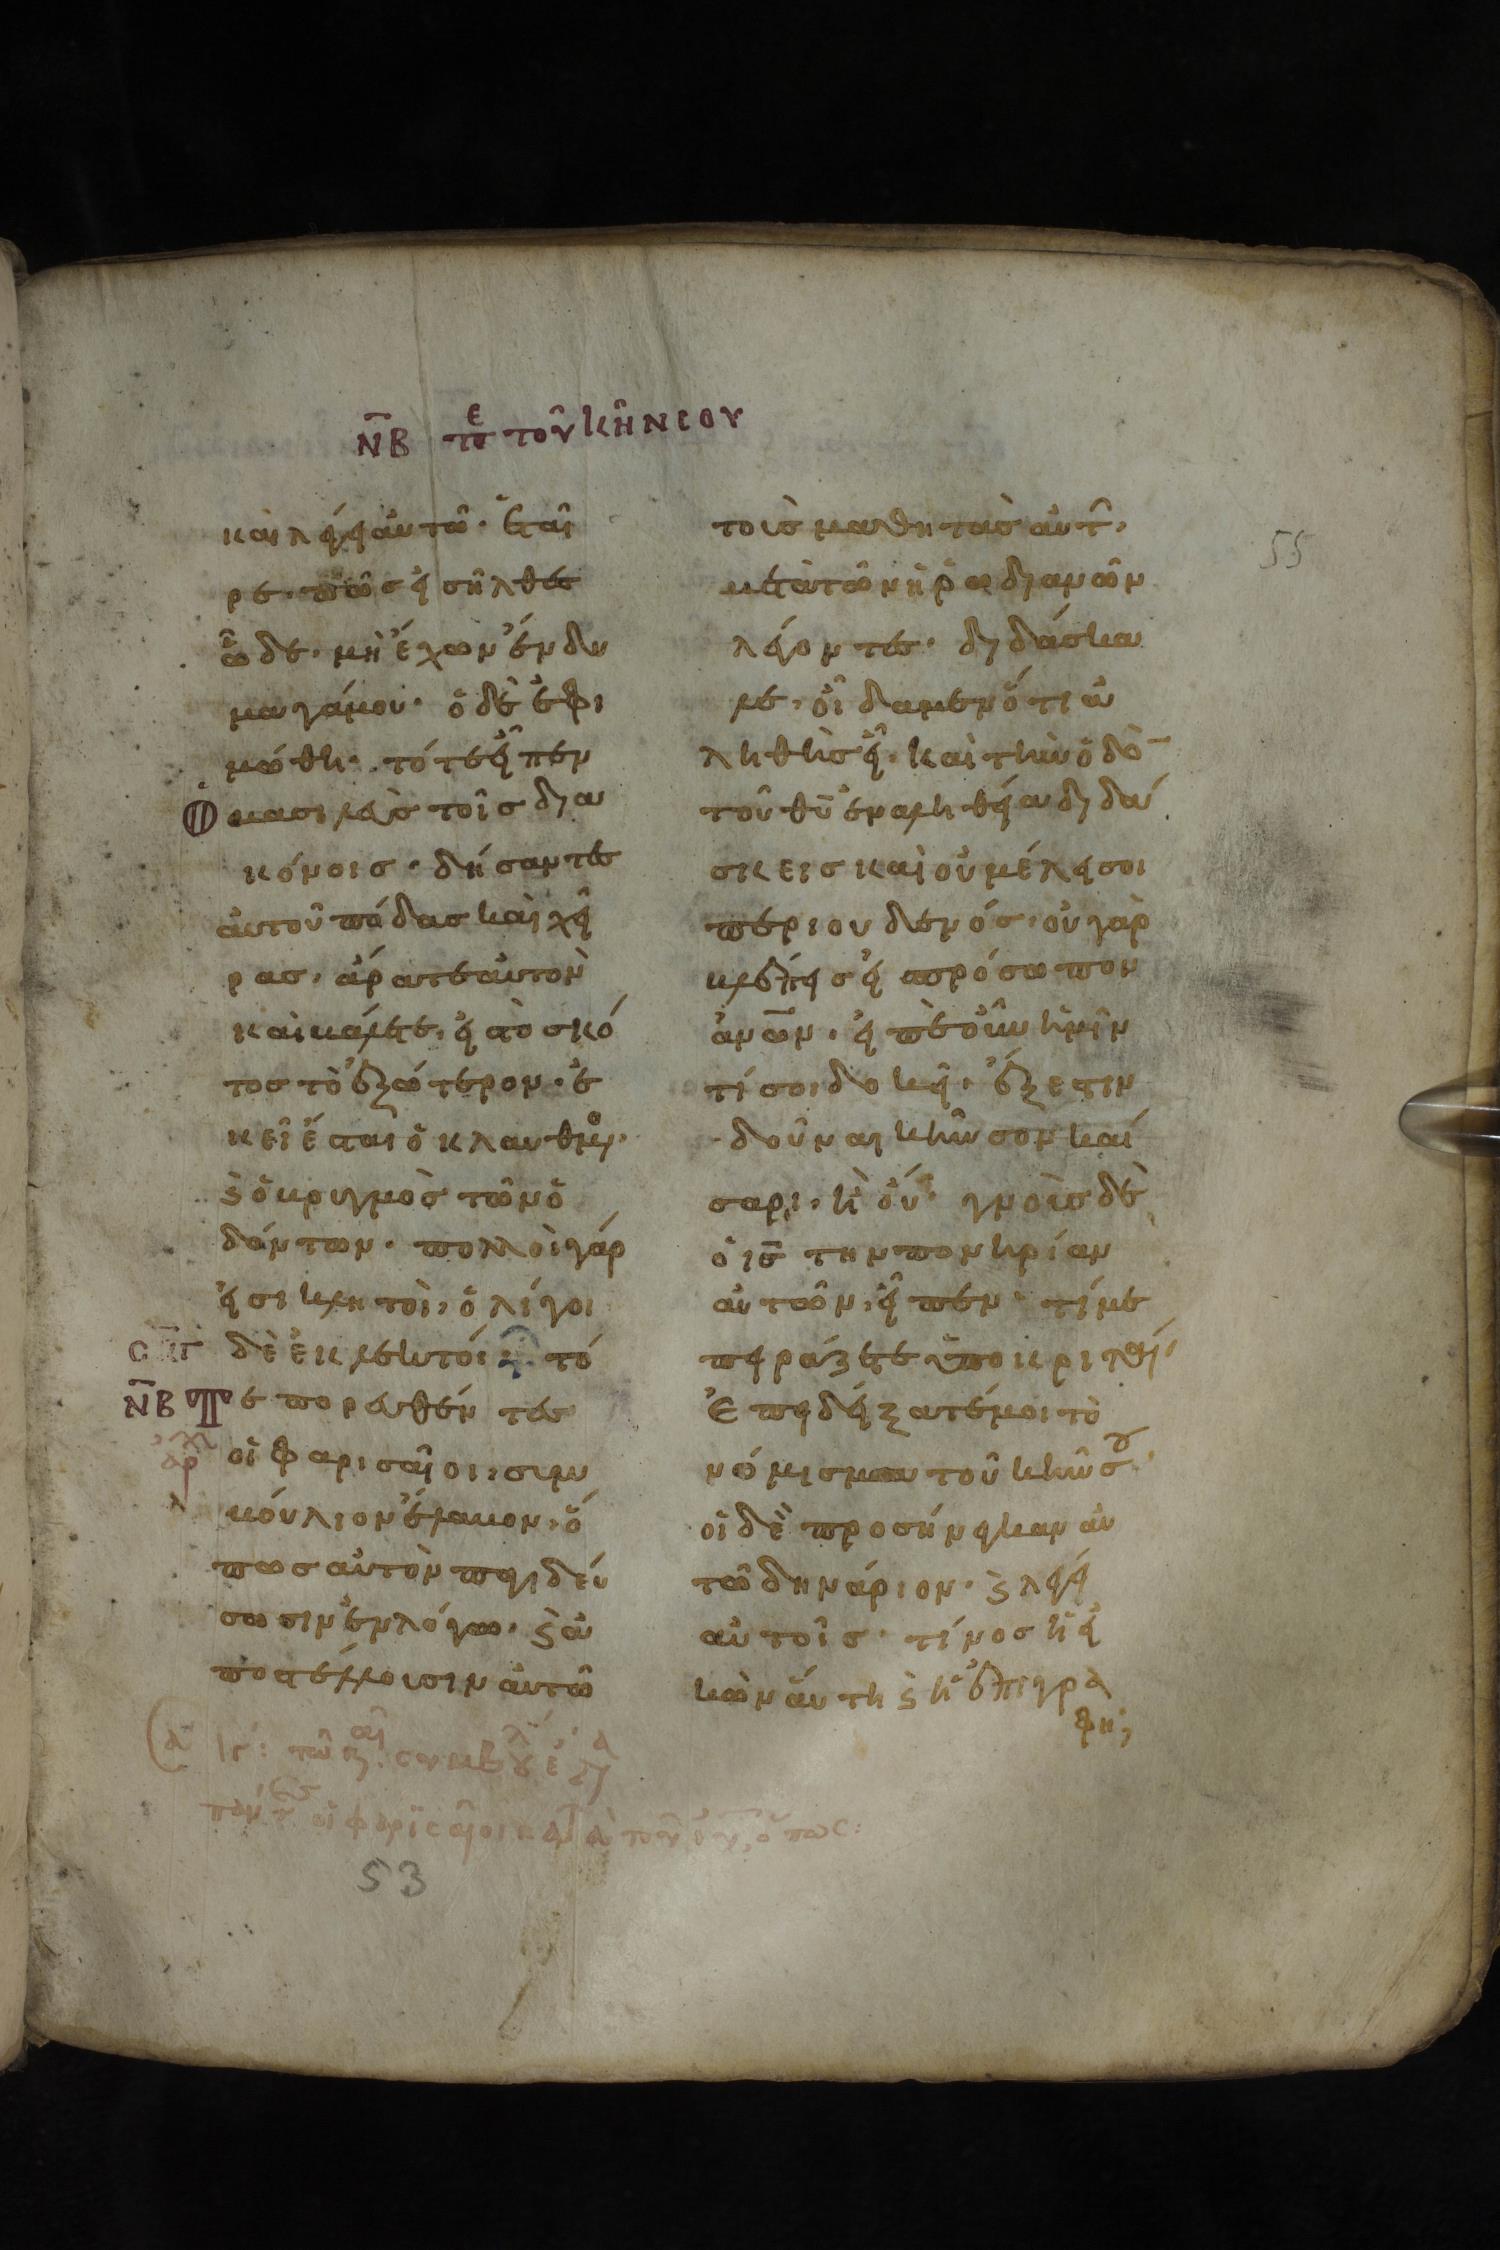 ΝΒ πε τοῦ κήνσου
καὶ λέγει αὐτῶ· ἑταῖ
ρε· πῶς εἰσῆλθες
ὧδε· μὴ ἔχων ἔνδυ
μα γάμου· ὁ δὲ ἐφι
μώθη· τότε εἶπεν
ὁ βασιλεὺς τοῖς δια
κόνοις· δήσαντες
αὐτοῦ πόδας καὶ χεῖ
ρας· ἄρατε αὐτὸν
καὶ βάλετε· εἰς τὸ σκό
τος τὸ ἐξώτερον· ἐ
κεῖ ἔσται ὁ κλαυθμὸς·
ϗ ὁ βρυγμὸς τῶν ὀ
δόντων· πολλοὶ γάρ
εἰσι κλητοὶ, ὀλίγοι
δὲ ἐκλεκτοί· τό
ΝΒ τε πορευθέντες
ἀρχ οἱ φαρισαῖοι· συμ
βούλιον ἔλαβον· ὅ
πως αὐτὸν παγιδεύ
σωσιν ἐν λόγω· ϗ ἀ
ποστέλλουσιν αὐτῶ
τοὺς μαθητὰς αὐτ̑·
μετὰ τῶν ἡρωδιανῶν
λέγοντες· διδάσκα
λε· οἴδαμεν ὅτι ἀ
ληθὴς εἶ· καὶ τὴν ὁδὸ̅
τοῦ θῦ ἐν ἀληθεία διδά
σκεις καὶ οὐ μέλει σοι
περὶ οὐδενός· οὐ γὰρ
βλέπεις εἰς πρόσωπον
ἀνων· εἰπὲ οὖν ἡμῖν
τί σοι δοκεῖ· ἔξεστιν
δοῦναι κῆνσον καί
σαρι· ἢ οὔ· γνοὺς δὲ
ὁ ις τὴν πονηρίαν
αὐτῶν· εἶπεν· τί με
πειράζετε ὑποκριταί·
ἐπιδείξατέ μοι τὸ
νόμισμα τοῦ κήνσου·
οἱ δὲ προσήνεγκαν αὐ
τῶ δηνάριον· ϗ λέγει
αὐτοῖς· τίνος ἡ εἰ
κὼν αὕτη ϗ ἡ ἐπιγρα
φή;
55
53